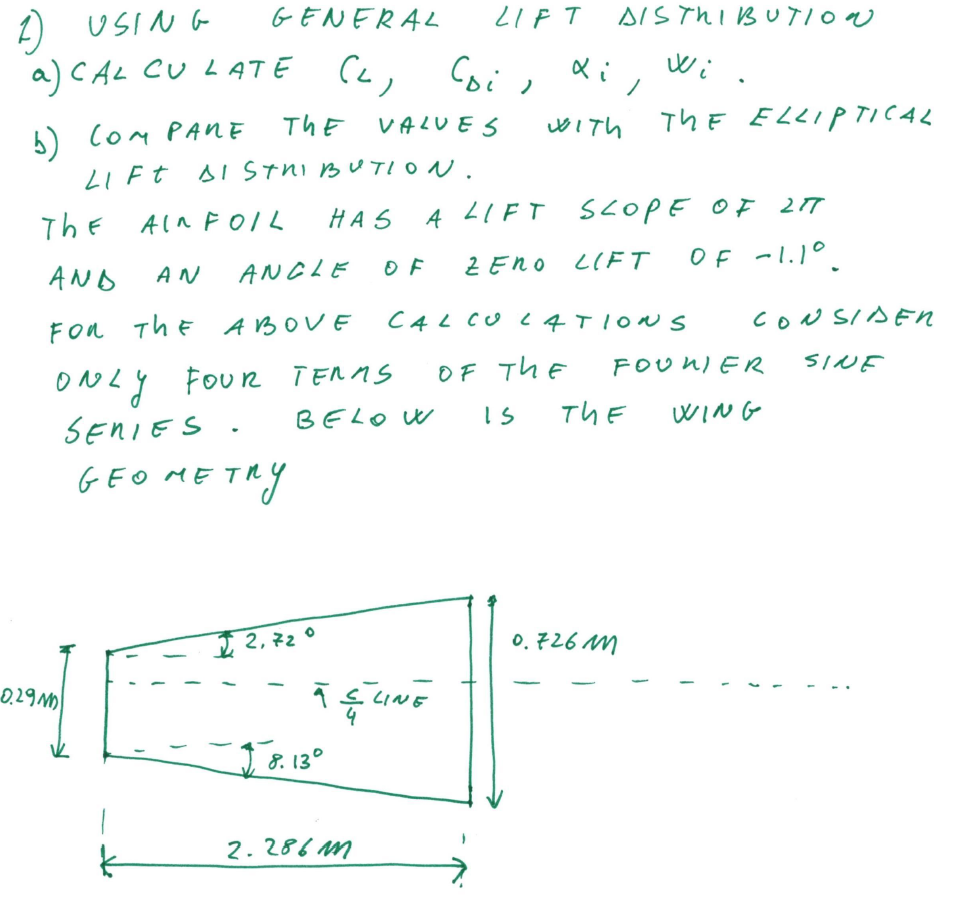 1) USING GENERAL LIFT DISTRIBUTION
a) CALCULATE CL, CDi, αi, wi.
b) COMPARE THE VALUES WITH THE ELLIPTICAL
LIFT DISTRIBUTION.
THE AIRFOIL HAS A LIFT SLOPE OF 2π
AND AN ANGLE OF ZERO LIFT OF -1.1°.
FOR THE ABOVE CALCULATIONS CONSIDER
ONLY FOUR TERMS OF THE FOURIER SINE
SERIES. BELOW IS THE WING
GEOMETRY
2.72°
0.726 m
0.29 m
c/4 LINE
8.13°
2.286 m